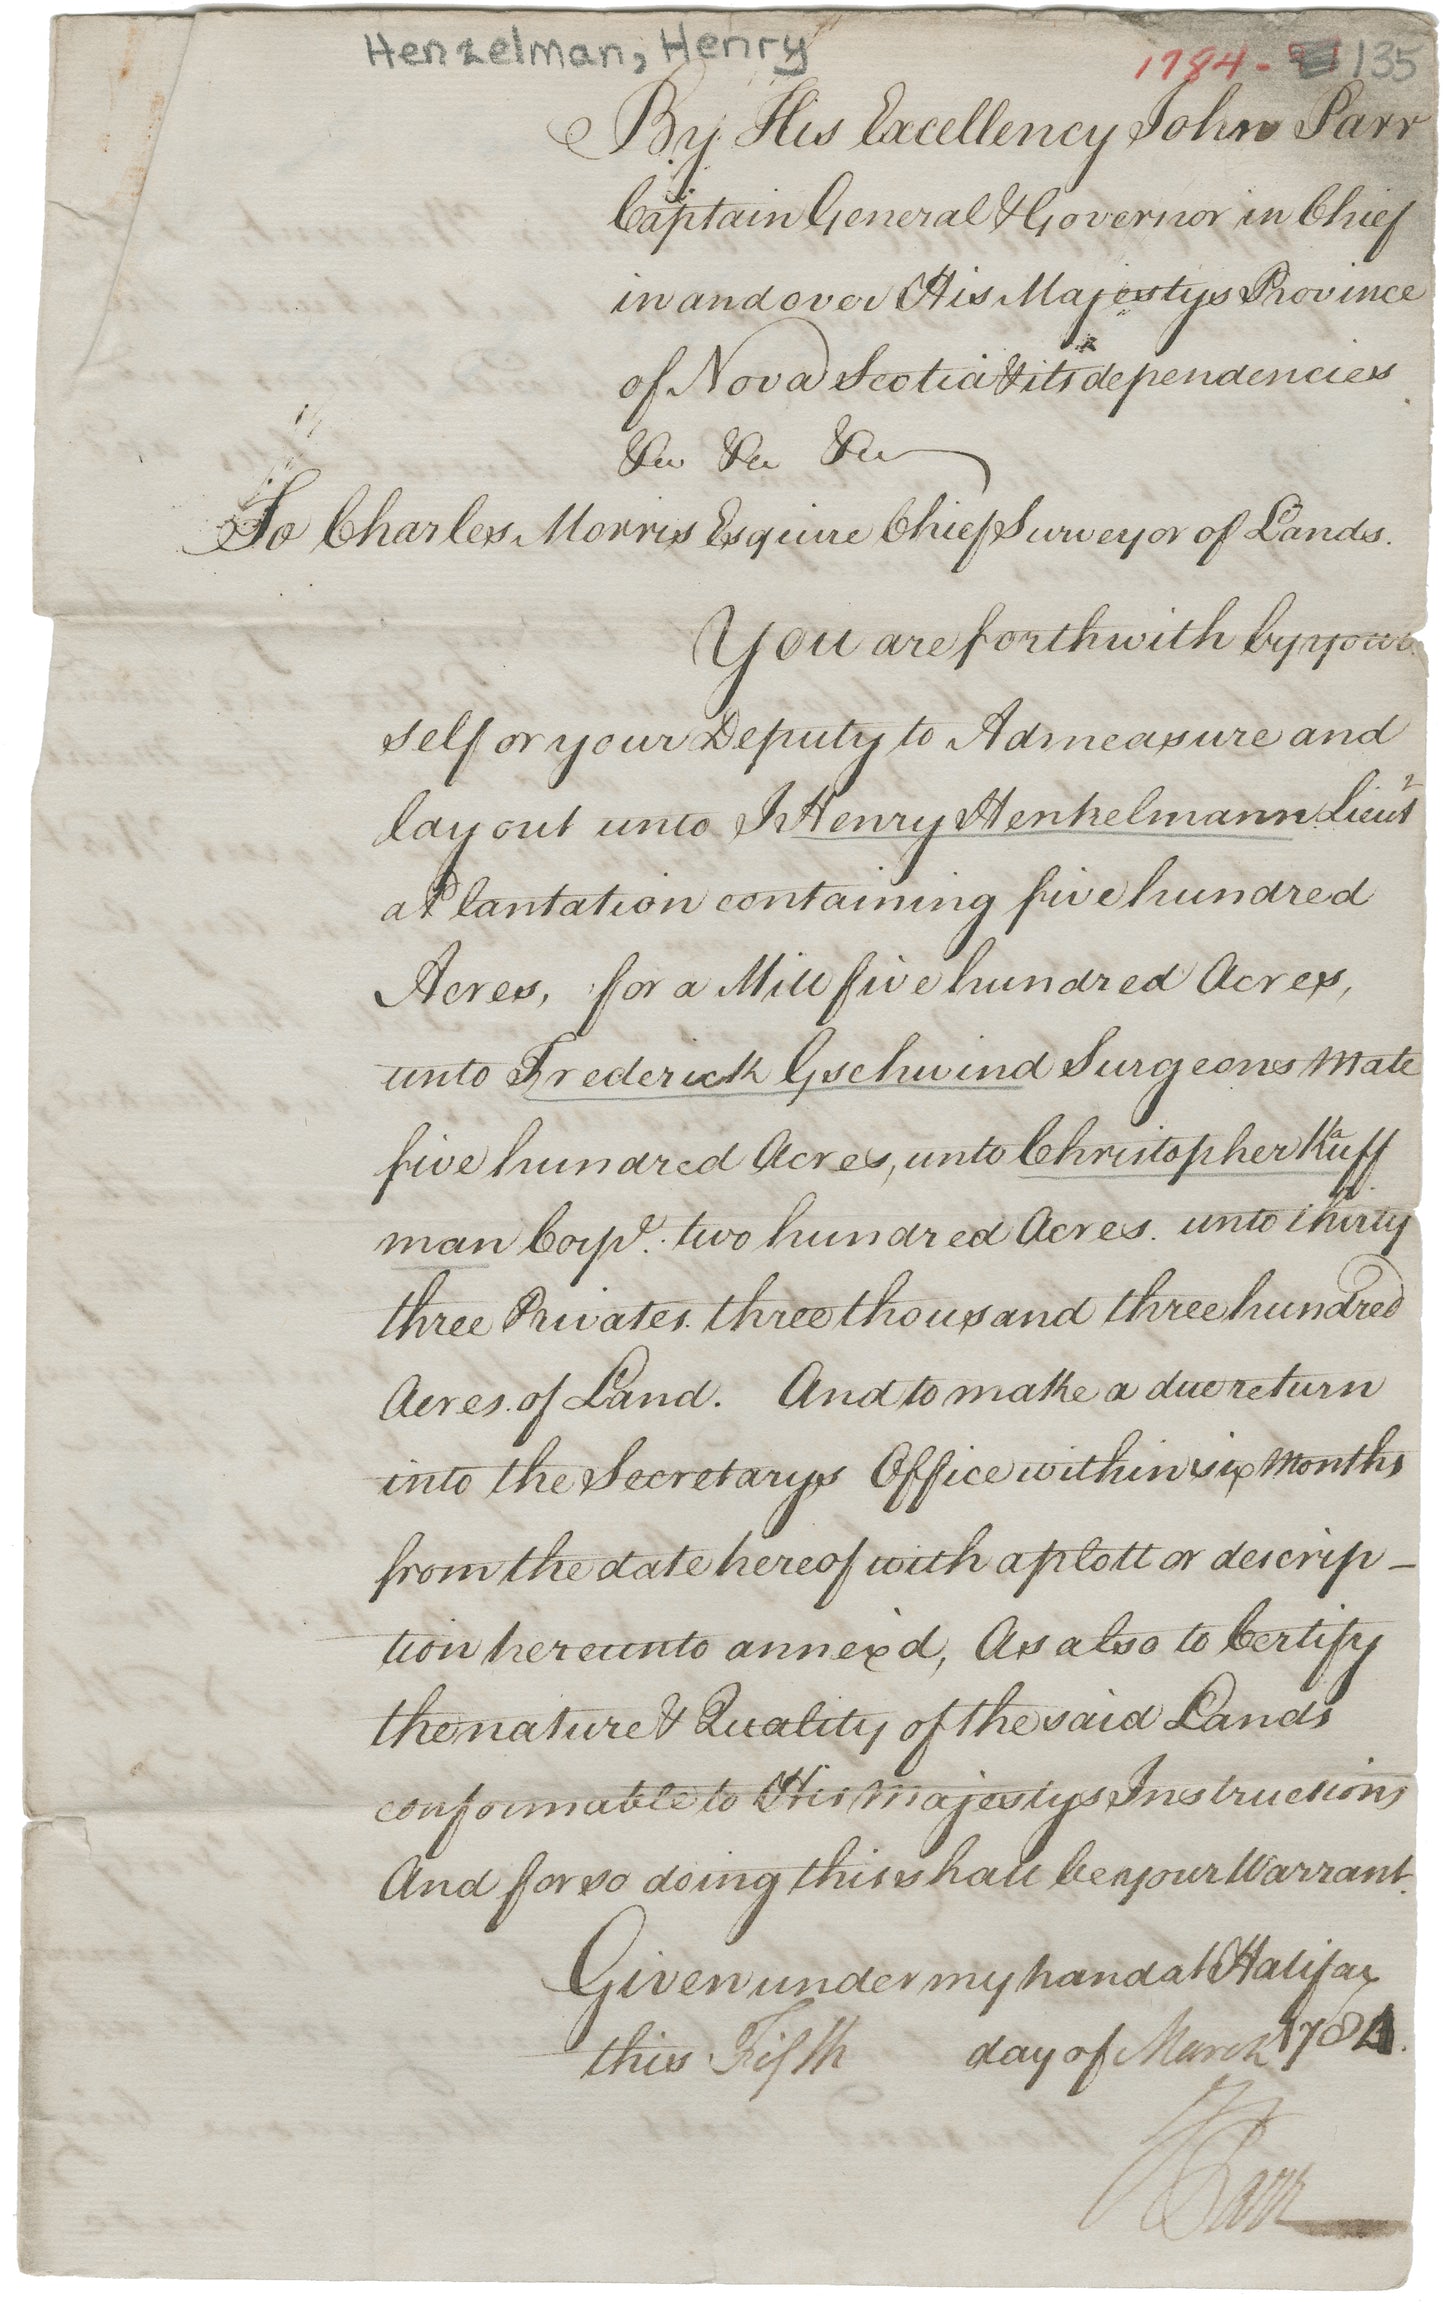 Henzelman, Henry
1784- 135
By His Excellency John Parr
Captain General & Governor in Chief
in and over His Majestys Province
of Nova Scotia & its dependencies
&ca &ca &ca
To Charles Morris Esquire Chief Surveyor of Lands.
You are forthwith by your
self or your Deputy to Admeasure and
lay out unto J Henry Henkelmann Lieut
a Plantation containing five hundred
Acres, for a Mill five hundred Acres,
unto Frederick Gschwind Surgeons Mate
five hundred Acres, unto Christopher Kauff
man Corpl. two hundred Acres. unto thirty
three Privates three thousand three hundred
Acres of Land. And to make a due return
into the Secretarys Office within six Months
from the date hereof with a plott or descrip-
tion hereunto annex'd, As also to Certify
the nature & Quality of the said Lands
conformable to His Majestys Instructions
And for so doing this shall be your Warrant.
Given under my hand at Halifax
this Fifth day of March 1784.
J Parr